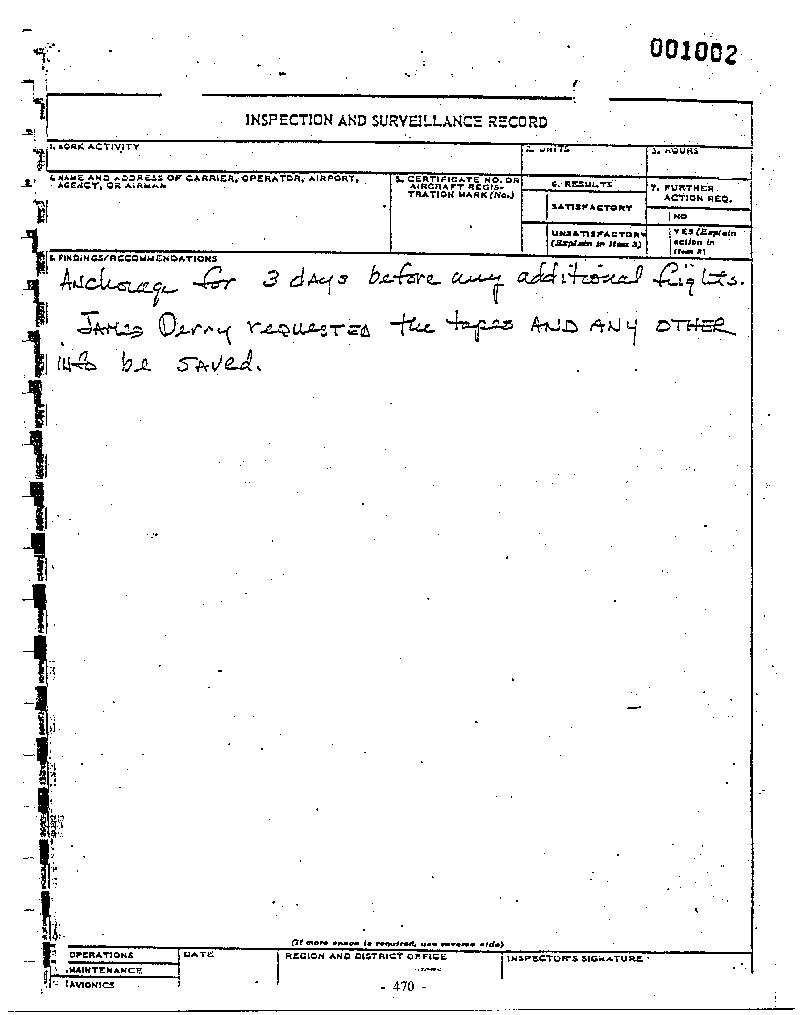 001002
INSPECTION AND SURVEILLANCE RECORD
1. WORK ACTIVITY
2. UNITS
3. HOURS
4. NAME AND ADDRESS OF CARRIER, OPERATOR, AIRPORT,
AGENCY, OR AIRMAN
5. CERTIFICATE NO. OR
AIRCRAFT REGIS-
TRATION MARK (No.)
6. RESULTS
SATISFACTORY
UNSATISFACTORY
(Explain in Item 8)
7. FURTHER
ACTION REQ.
NO
YES (Explain
action in
Item 8)
8. FINDINGS/RECOMMENDATIONS
Anchorage for 3 days before any additional flights.
JAMES Derry requested the tapes AND ANY OTHER
info be saved.
(If more space is required, use reverse side)
OPERATIONS
MAINTENANCE
AVIONICS
DATE
REGION AND DISTRICT OFFICE
INSPECTOR'S SIGNATURE
- 470 -